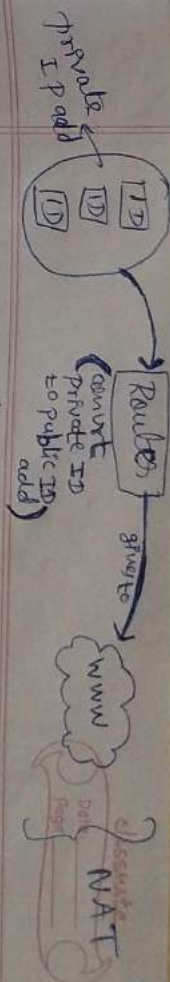 private
IP add
ID
ID
ID
Router
(convert
private ID
to public ID
add)
gives to
WWW
NAT
classmate
Date
Page